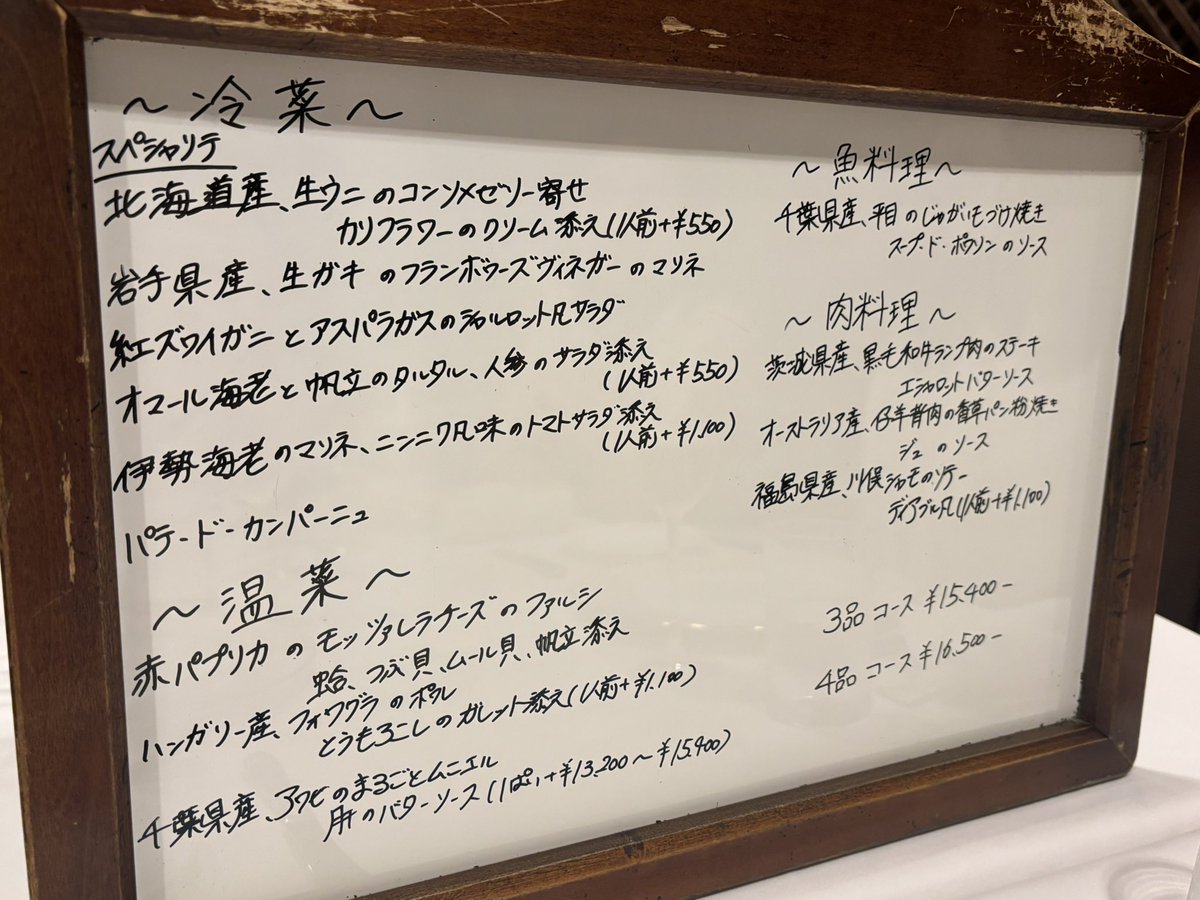 ～冷菜～
スペシャリテ
北海道産、生ウニのコンソメゼリー寄せ
カリフラワーのクリーム添え(1人前+¥550)
岩手県産、生ガキのフランボワーズヴィネガーのマリネ
紅ズワイガニとアスパラガスのシャルロット風サラダ
オマール海老と帆立のタルタル、人参のサラダ添え
(1人前+¥550)
伊勢海老のマリネ、ニンニク風味のトマトサラダ添え
(1人前+¥1,100)
パテ・ド・カンパーニュ
～温菜～
赤パプリカのモッツァレラチーズのファルシ
蛤、つぶ貝、ムール貝、帆立添え
ハンガリー産、フォワグラのポワレ
とうもろこしのガレット添え(1人前+¥1,100)
千葉県産、アワビのまるごとムニエル
肝のバターソース(1ぱい+¥13,200～¥15,400)
～魚料理～
千葉県産、平目のじゃがいもづけ焼き
スープ・ド・ポワソンのソース
～肉料理～
茨城県産、黒毛和牛ランプ肉のステーキ
エシャロットバターソース
オーストラリア産、仔羊背肉の香草パン粉焼き
ジュのソース
福島県産、川俣シャモのソテー
ディアブル風(1人前+¥1,100)
3品コース ¥15,400-
4品コース ¥16,500-